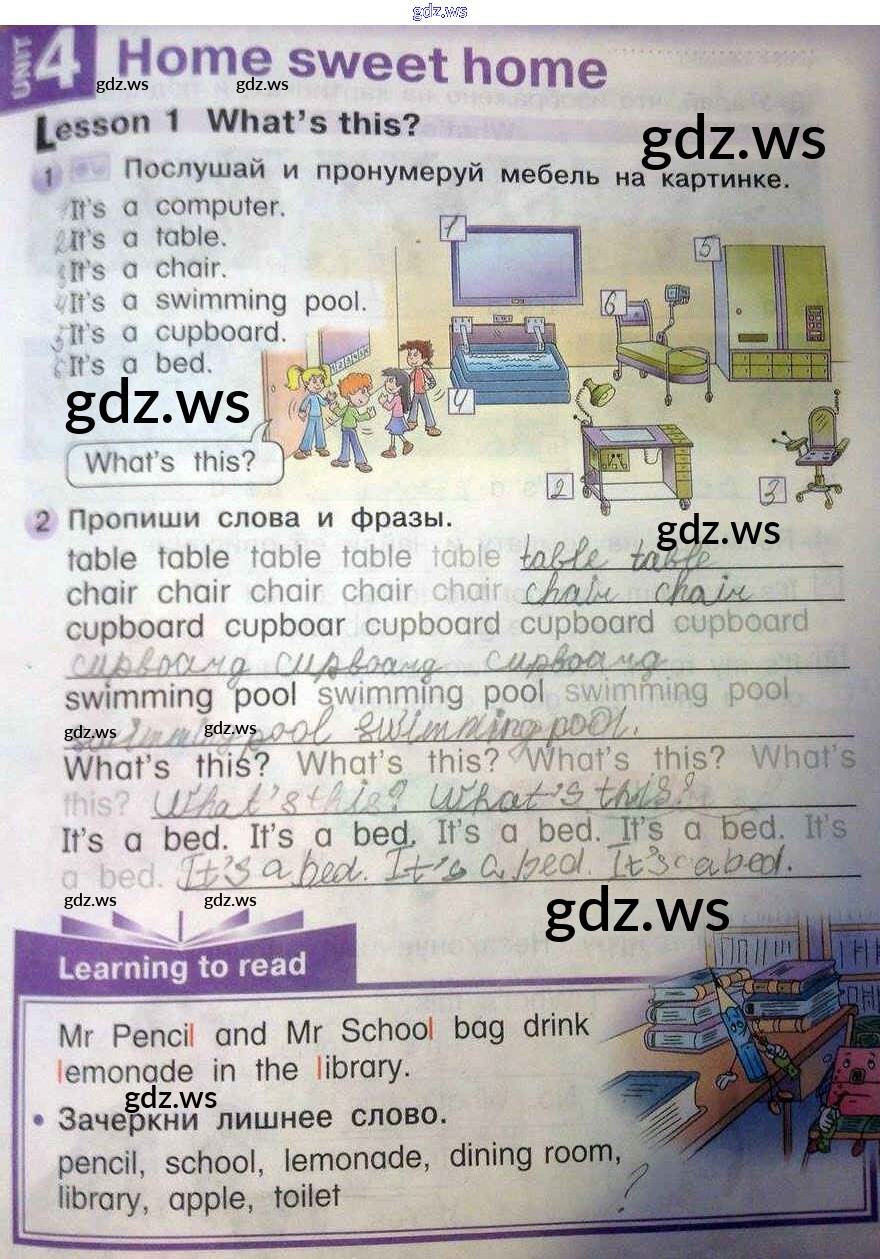 gdz.ws
UNIT 4 Home sweet home
gdz.ws gdz.ws
Lesson 1 What's this?
gdz.ws
1 Послушай и пронумеруй мебель на картинке.
1 It's a computer.
2 It's a table.
3 It's a chair.
4 It's a swimming pool.
5 It's a cupboard.
6 It's a bed.
1
5
6
4
gdz.ws
What's this?
2
3
2 Пропиши слова и фразы.
gdz.ws
table table table table table table table
chair chair chair chair chair chair chair
cupboard cupboar cupboard cupboard cupboard
cupboard cupboard cupboard
swimming pool swimming pool swimming pool
gdz.ws gdz.ws
swimming pool swimming pool.
What's this? What's this? What's this? What's
this? What's this? What's this?
It's a bed. It's a bed. It's a bed. It's a bed. It's
a bed. It's a bed. It's a bed. It's a bed.
gdz.ws gdz.ws
gdz.ws
Learning to read
Mr Pencil and Mr School bag drink
lemonade in the library.
gdz.ws
• Зачеркни лишнее слово.
pencil, school, lemonade, dining room,
library, apple, toilet ?